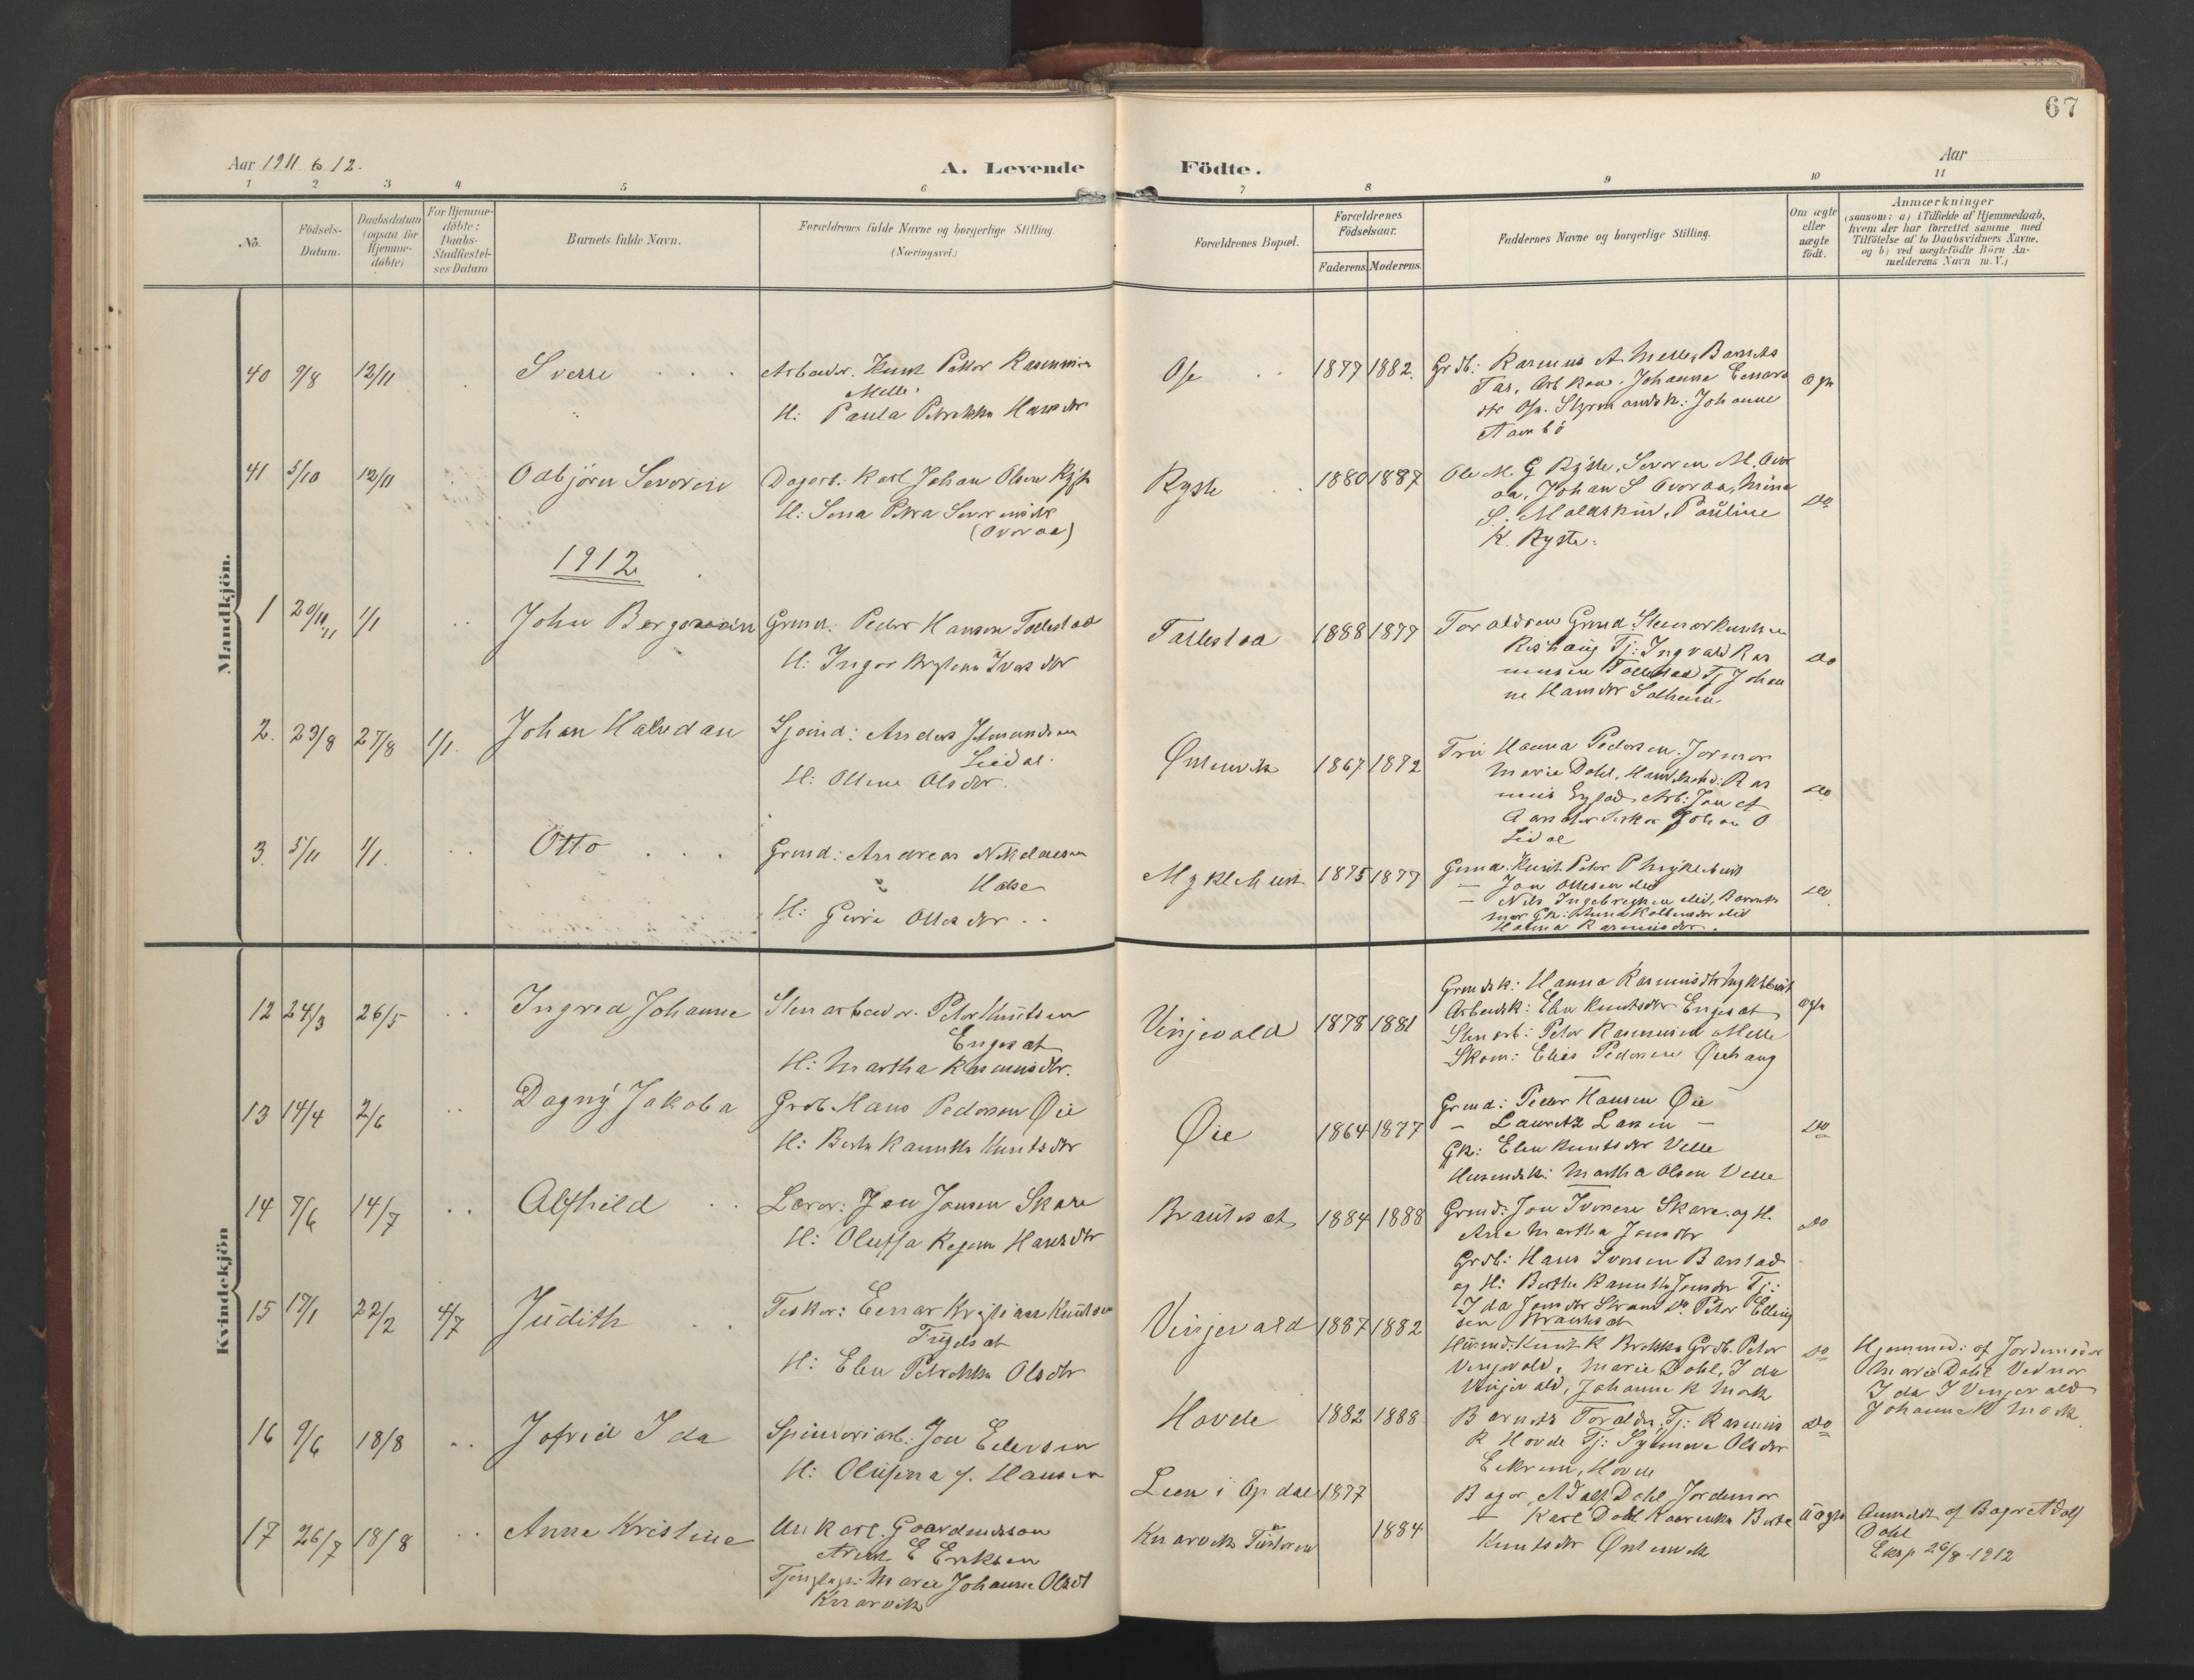 67
Aar 1911 to 12.
A. Levende
Födte.
Aar
1 2 3 4 5 6 7 8 9 10 11
No.
Födsels-
Datum.
Daabsdatum
(ogsaa for
Hjemme-
döbte)
For Hjemme-
döbte:
Daabs-
Stadfæstel-
ses Datum
Barnets fulde Navn.
Forældrenes fulde Navne og borgerlige Stilling.
(Næringsvei.)
Forældrenes Bopæl.
Forældrenes
Födselsaar.
Faderens. Moderens.
Faddernes Navne og borgerlige Stilling.
Om ægte
eller
uægte
födt.
Anmærkninger
(saasom: a) i Tilfælde af Hjemmedaab,
hvem der har forrettet samme med
Tilföielse af to Daabsvidners Navne.
og b) ved uægtefödte Börn An-
melderens Navn m. V.)
Mandkjön.
40 9/8 12/11 Sverre
Arbeider. Knut Petter Rasmussen
Melle
H: Paula Petrikka Hansdtr
Ose 1877 1882.
Grdb: Rasmus A. Melle, Barnets
Far, Arb kone. Johanne Einars
dtr Ose. Styrmandsk: Johanne
Aambö
ægte
41 5/10 12/11 Odbjörn Severin
Dagarb: Karl Johan Olsen Ryste
H: Sina Petra Severinsdtr
(Overaa)
Ryste 1880 1887
Ole M. G Ryste, Severin M. Over
aa, Johan S Overaa, Mina
S. Malaskin, Pauline
K. Ryste.
Do
1912
1 20/11 11 1/1 John Bergmann
Grmd. Peder Hansen Tollestad
H: Inger Kristens Ivarsdtr
Tollestad 1888 1877
Foraldren Grmd. Steinar Knutsen
Rishaug Tj: Ingvald Ras
mussen Tollestad Tj Johan
ne Hansdtr Solheim
Do
2. 23/8 27/8 1/1. Johan Halvdan
Sjömd: Anders Johannesen
Lidal.
H: Oline Olsdtr.
Örstenvik 1867 1872
Fru Hanna Pedersen. Jormor
Marie Dahl, Handelsbd: Ras
mus Eysad, Arb: Jon A
Johan O
Lidal
Do
3. 5/11 1/1. Otto
Grmd: Andreas Nikolaisen
Halse
H: Guri Ottesdtr
Myklebust 1875 1877
Grmd: Knut Peter P Myklebust
— Jon Ottesen ibid
— Nils Ingebregtsen ibid, Barnets
mor Gk: Anna Kolbensdtr ibid
Halina Rasmusdtr.
Do
Kvindekjön
12 24/3 26/5 Ingrid Johanne
Stenarbeider. Peter Knutsen
Engeset
H: Martha Rasmusdtr.
Vinjevold 1878 1881
Grmdsk: Hanna Rasmusdtr Myklebust
Arbeidsk: Elen Knutsdtr Engeset
Stenarb: Peter Rasmussen Melle
Skom: Elias Pedersen Öiehaug
ægte
13 14/4 2/6 Dagny Jakoba
Grdb. Hans Pedersen Öie
H: Berte Kanutte Knutsdtr
Öie 1864 1877
Grmd: Peder Hansen Öie
— Lauritz Larsen —
Gk: Elen Knutsdtr Velle
Husmdsk: Martha Olsen Velle
Do
14 7/6 14/7 Alfhild
Lærer: Jon Jonsen Skare
H: Oluffa Regine Hansdtr
Brauteset 1884 1888
Grmd: Jon Iversen Skare og H.
Ane Martha Jonsdtr
Grdb: Hans Iversen Barstad
og H: Berthe Kanutte Jonsdtr Tj:
Ida Jonsdtr Strand Do Peter Elling
sen Brauteset
Do
15 17/1 22/2 4/7 Judith
Fisker: Einar Kristian Knutsen
Fugelset
H: Elen Petrikka Olsdtr
Vinjevold 1887 1882
Husmd: Knut K Brekke Grdb. Peter
Vinjevold, Marie Dahl, Ida
Vinjevold, Johanne K Mork
Do
Hjemmed: af Jordemoder
Marie Dahl Vidner
Ida I Vinjevold
Johanne K Mork
16 9/6 18/8 Jofrid Ida
Spinneriarb: Jon Edersen
H: Olufina J. Hansen
Hovde 1882 1888
Barnets Foraldre, Tj: Rasmus
R Hovde Tj: Synneve Olsdtr
Eikrem, Hovde
Do
17 26/7 18/8 Anne Kristine
Un Karl. Gaardmdssøn
Arent E Eriksen
Tjenestepi: Marie Johanne Olsdt
Knarvik
Lien i Opdal 1877
Knarvik Tustern 1884
Bager Adolf Dahl Jordemor
— Karl Dahl Berte
Knutsdtr Örstenvik
uægte
Anmeldt af Bager Adolf
Dahl
Eksp 26/8-1912